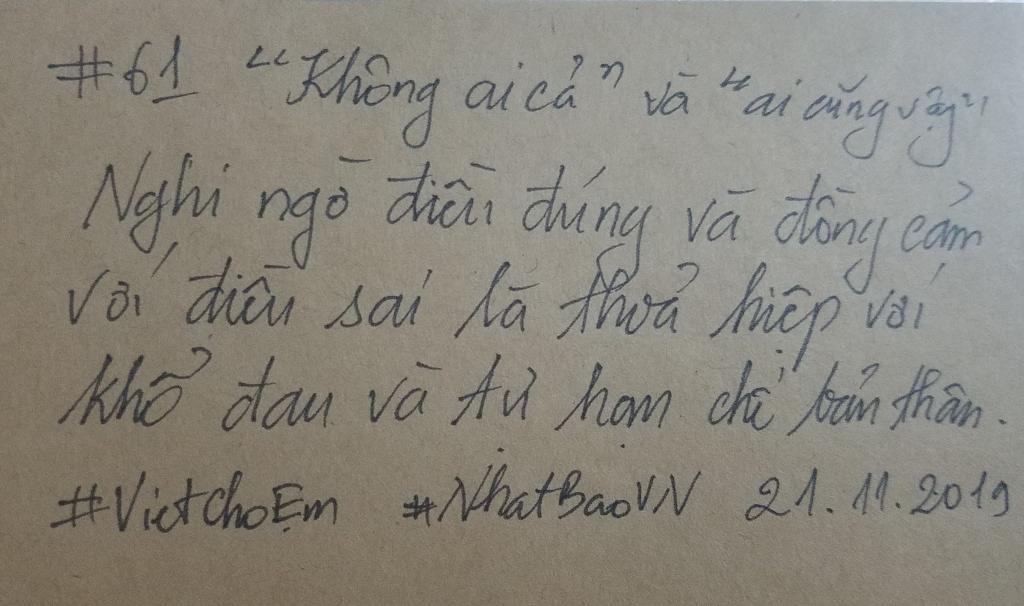 #61 "Không ai cả" và "ai cũng vậy"
Nghi ngờ điều đúng và đồng cảm
với điều sai là thoả hiệp với
khổ đau và tự hạn chế bản thân.
#VietChoEm #NhatBaoVN 21.11.2019